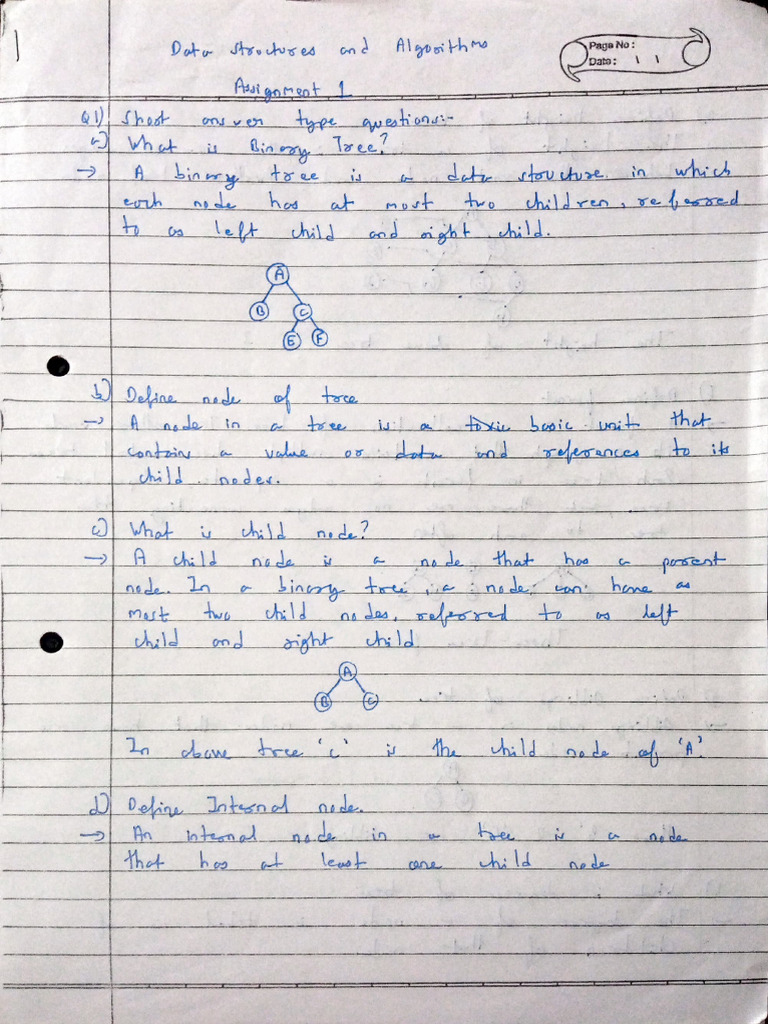 1
Data Structures and Algorithms
Page No:
Date: \ \
Assignment 1
Q1) Short answer type questions:-
a) What is Binary Tree?
→ A binary tree is a data structure in which
each node has at most two children, referred
to as left child and right child.
A
B C
E F
b) Define node of tree
→ A node in a tree is a basic unit that
contains a value or data and references to its
child nodes.
c) What is child node?
→ A child node is a node that has a parent
node. In a binary tree, a node can have as
most two child nodes, referred to as left
child and right child.
A
B C
In above tree 'C' is the child node of 'A'.
d) Define Internal node.
→ An internal node in a tree is a node
that has at least one child node